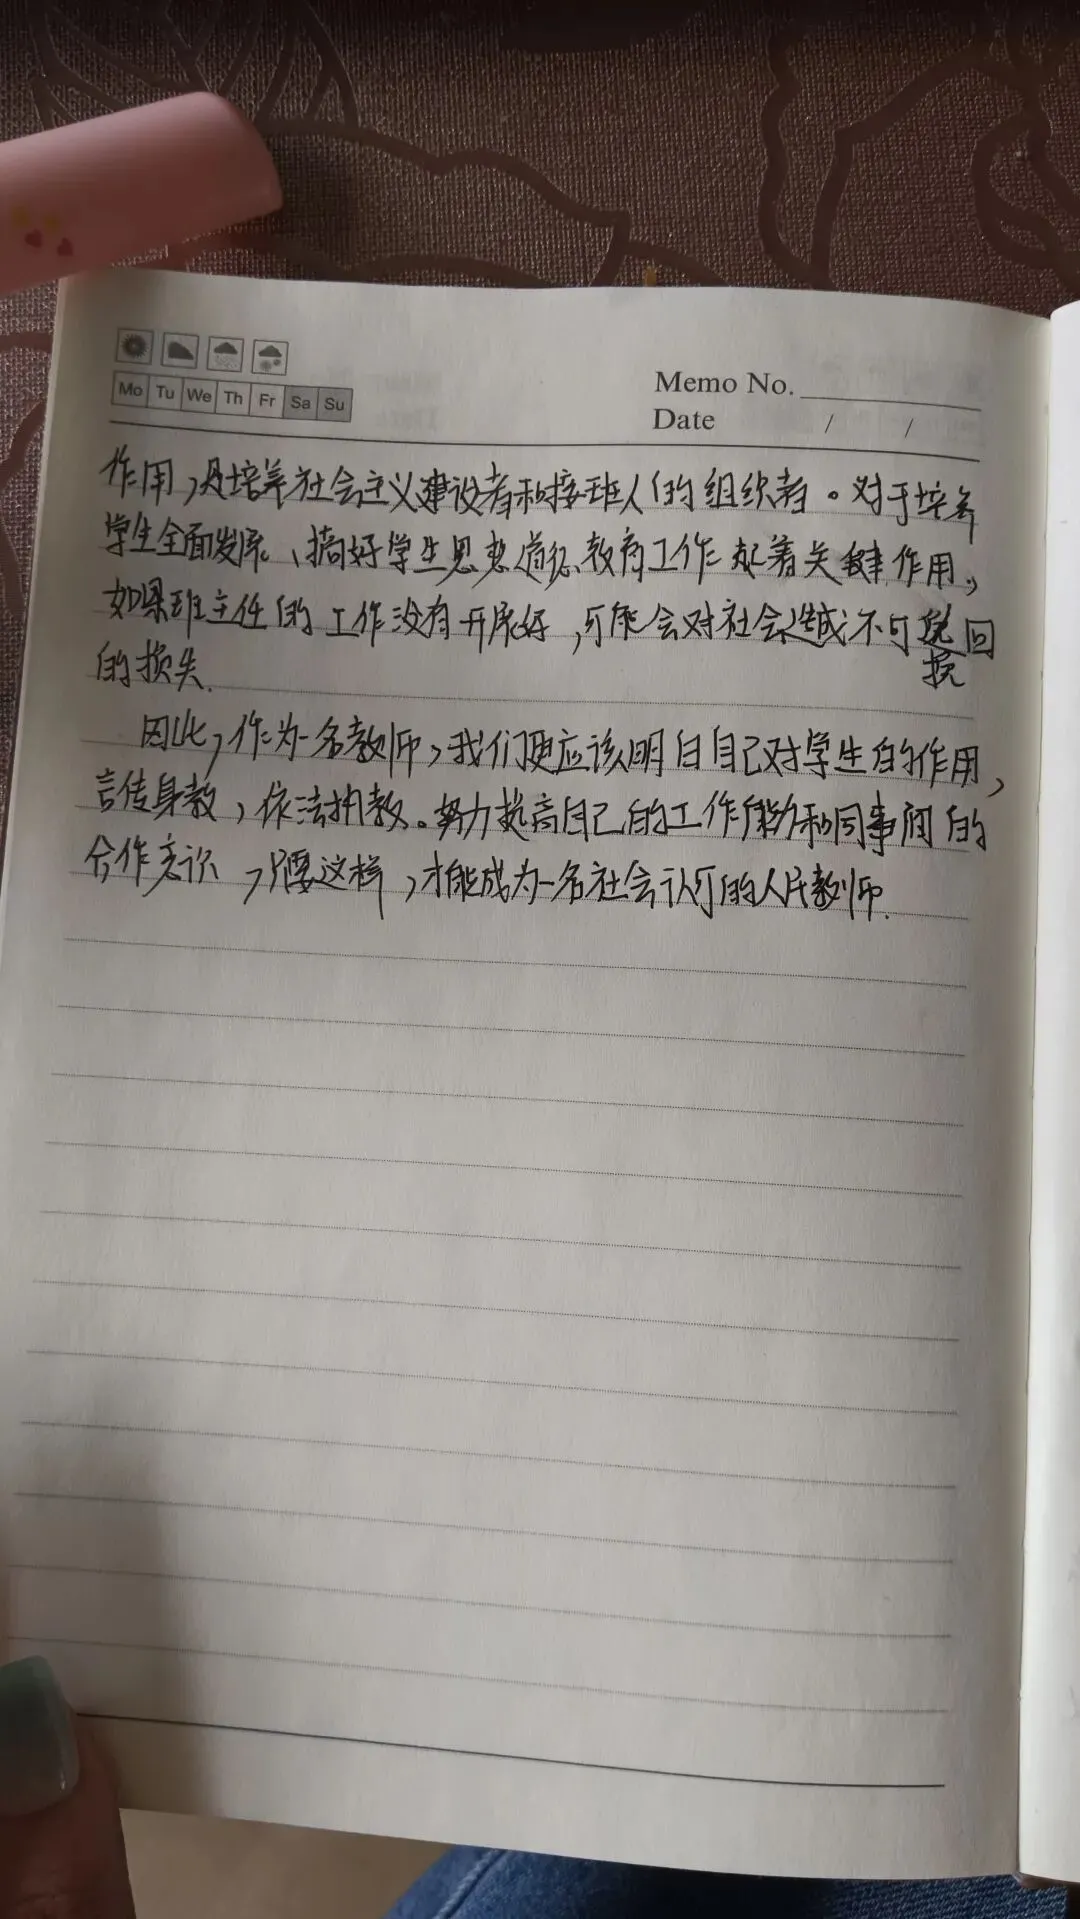 Mo Tu We Th Fr Sa Su
Memo No.
Date / /
作用,及培养社会主义建设者和接班人的组织者。对于培养
学生全面发展、搞好学生思想道德教育工作起着关键作用。
如果班主任的工作没有开展好,可能会对社会造成不可挽回
挽
的损失.
因此,作为一名教师,我们更应该明白自己对学生的作用,
言传身教,依法执教。努力提高自己的工作能力和同事间的
合作意识,只要这样,才能成为一名社会认可的人民教师.